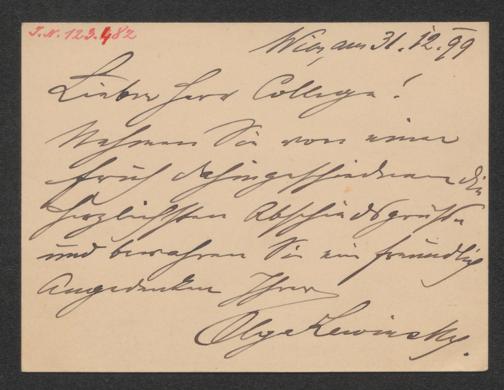 J.N. 123.482
Wien, am 31.12.99
Lieber Herr College!
Nehmen Sie von einer
früh dahingeschiedenen die
herzlichsten Abschiedsgrüße
und bewahren Sie ein freundlich
Angedenken Ihrer
Olga Lewinsky.